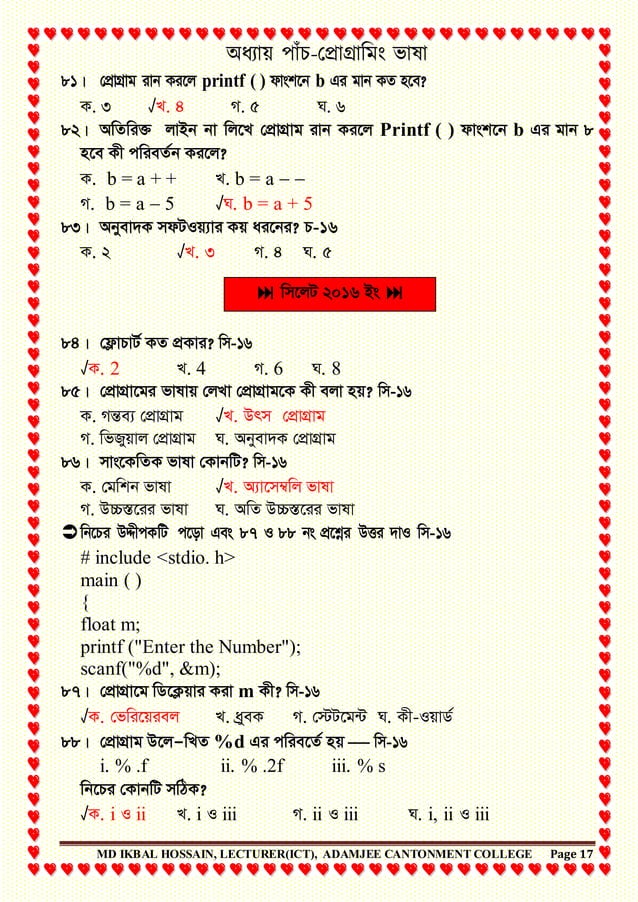 অধ্যায় পাঁচ-প্রোগ্রামিং ভাষা
৮১। প্রোগ্রাম রান করলে printf ( ) ফাংশনে b এর মান কত হবে?
ক. ৩ √খ. ৪ গ. ৫ ঘ. ৬
৮২। অতিরিক্ত লাইন না লিখে প্রোগ্রাম রান করলে Printf ( ) ফাংশনে b এর মান ৮
হবে কী পরিবর্তন করলে?
ক. b = a + + খ. b = a – –
গ. b = a – 5 √ঘ. b = a + 5
৮৩। অনুবাদক সফটওয়্যার কয় ধরনের? চ-১৬
ক. ২ √খ. ৩ গ. ৪ ঘ. ৫
⏭ সিলেট ২০১৬ ইং ⏭
৮৪। ফ্লোচার্ট কত প্রকার? সি-১৬
√ক. 2 খ. 4 গ. 6 ঘ. 8
৮৫। প্রোগ্রামের ভাষায় লেখা প্রোগ্রামকে কী বলা হয়? সি-১৬
ক. গন্তব্য প্রোগ্রাম √খ. উৎস প্রোগ্রাম
গ. ভিজুয়াল প্রোগ্রাম ঘ. অনুবাদক প্রোগ্রাম
৮৬। সাংকেতিক ভাষা কোনটি? সি-১৬
ক. মেশিন ভাষা √খ. অ্যাসেম্বলি ভাষা
গ. উচ্চস্তরের ভাষা ঘ. অতি উচ্চস্তরের ভাষা
➲নিচের উদ্দীপকটি পড়ো এবং ৮৭ ও ৮৮ নং প্রশ্নের উত্তর দাও সি-১৬
# include <stdio. h>
main ( )
{
float m;
printf ("Enter the Number");
scanf("%d", &m);
৮৭। প্রোগ্রামে ডিক্লেয়ার করা m কী? সি-১৬
√ক. ভেরিয়েরবল খ. ধ্রুবক গ. স্টেটমেন্ট ঘ. কী-ওয়ার্ড
৮৮। প্রোগ্রাম উলে–খিত %d এর পরিবর্তে হয় — সি-১৬
i. % .f ii. % .2f iii. % s
নিচের কোনটি সঠিক?
√ক. i ও ii খ. i ও iii গ. ii ও iii ঘ. i, ii ও iii
MD IKBAL HOSSAIN, LECTURER(ICT), ADAMJEE CANTONMENT COLLEGE Page 17